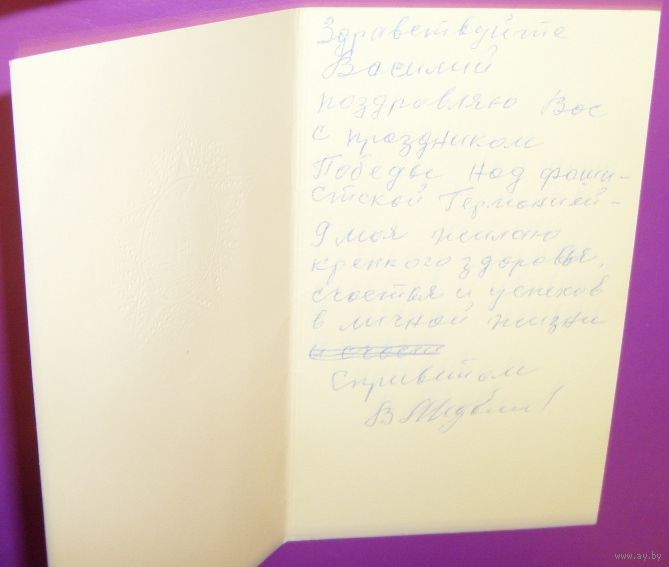 Здравствуйте
Василий
поздравляю Вас
с праздником
Победы над фаши-
стской Германией -
9 мая жилаю
крепкого здоровья,
счастья и успехов
в личной жизни
и счаст
Спривитом
В
www.ay.by